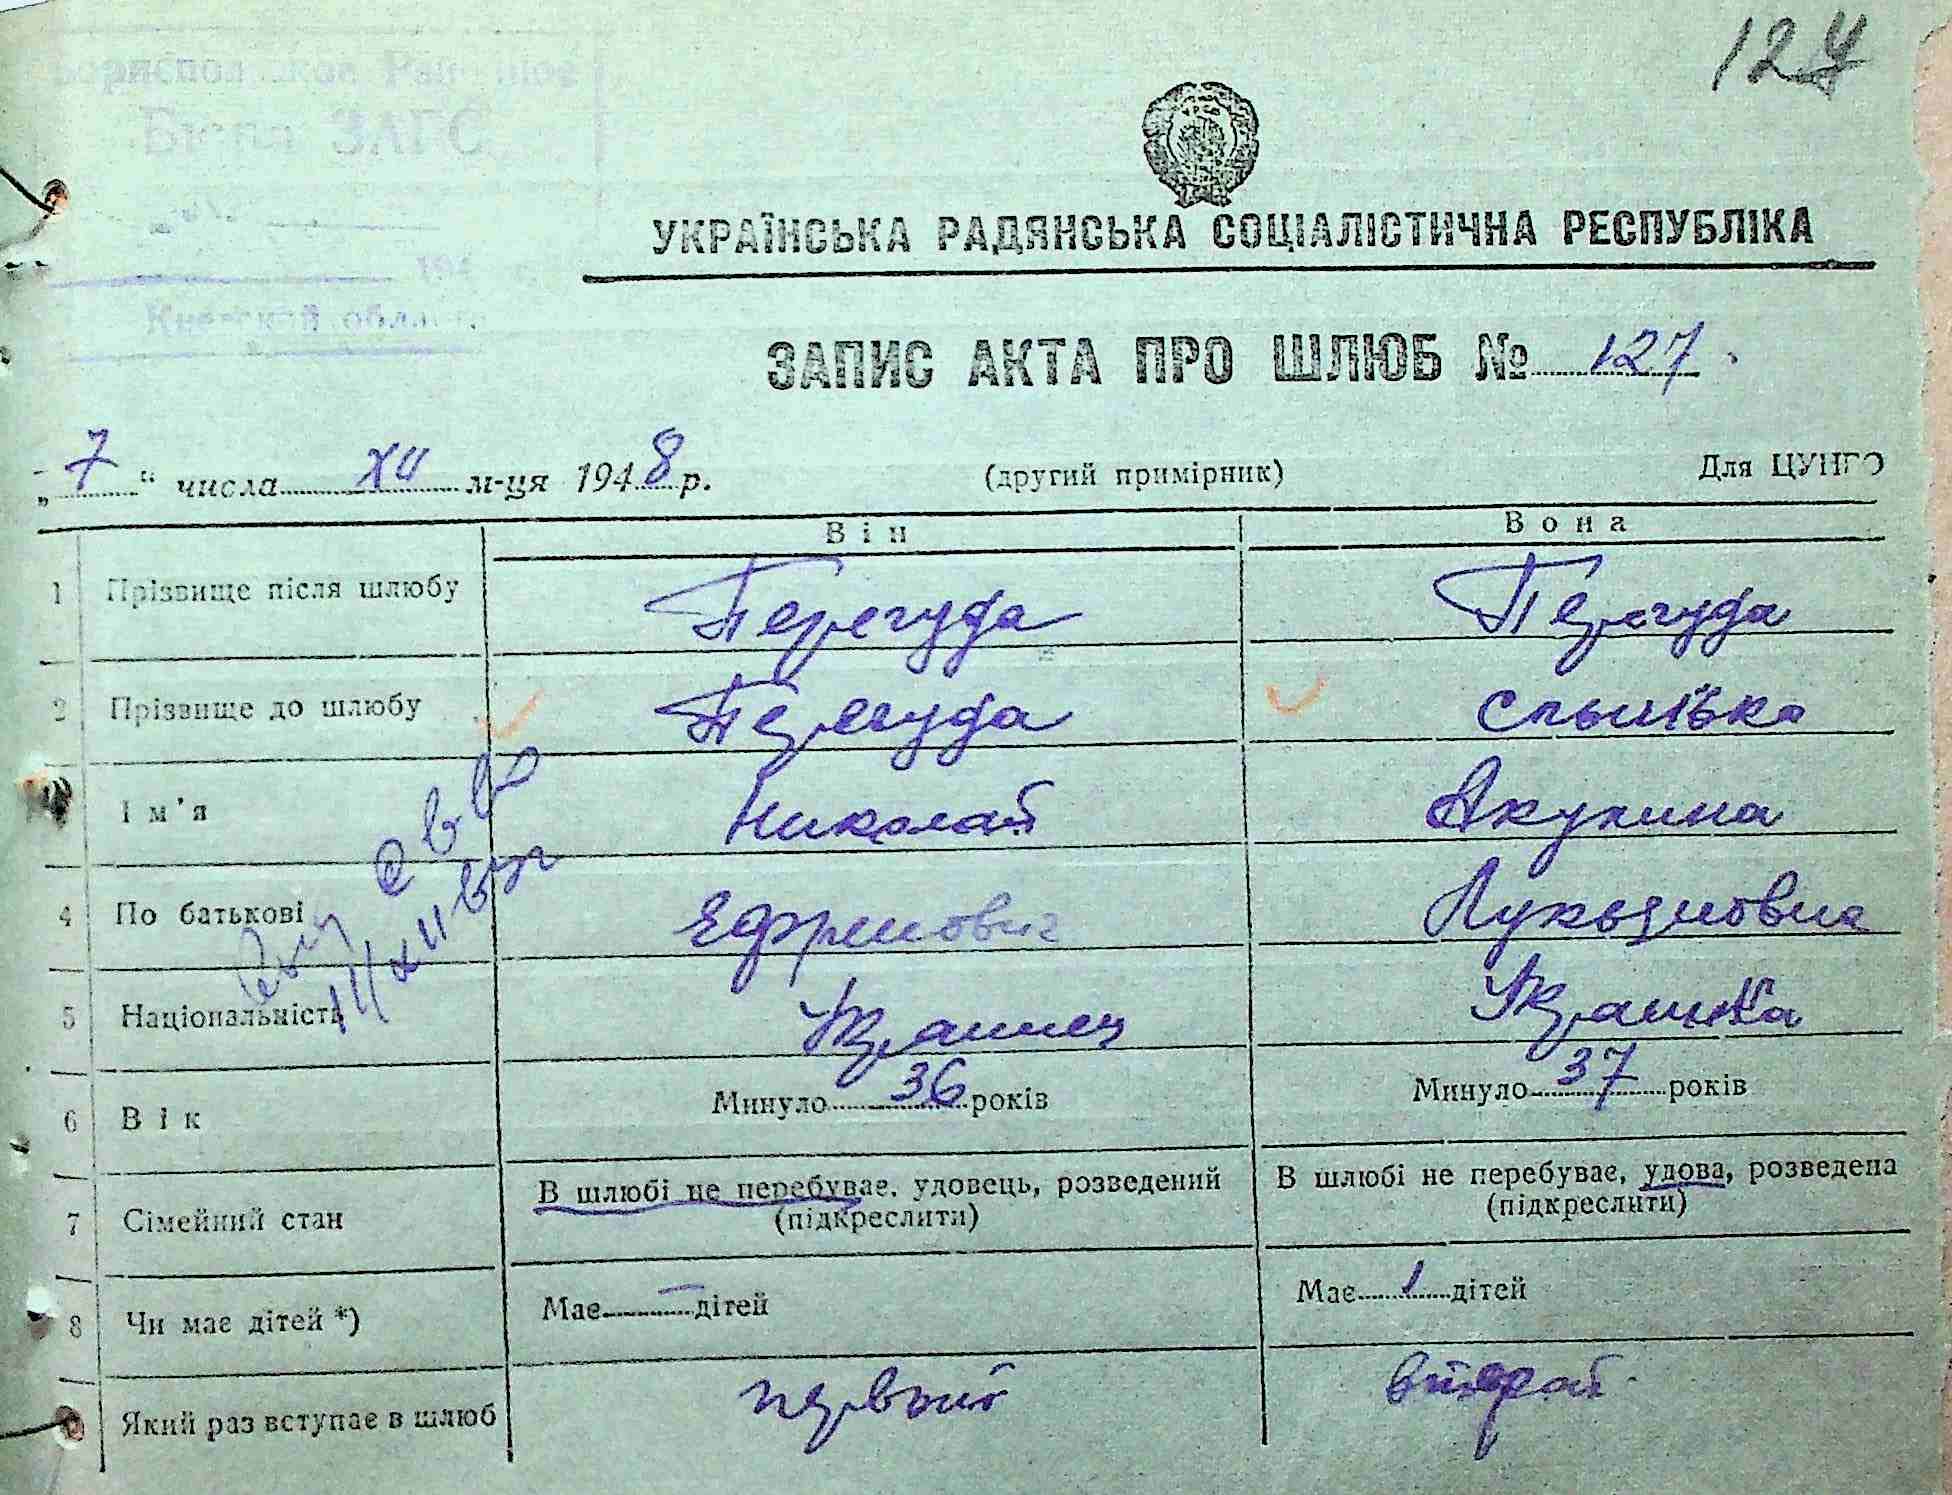 124
Бюро ЗАГС
194
Киевской област
УКРАЇНСЬКА РАДЯНСЬКА СОЦІАЛІСТИЧНА РЕСПУБЛІКА
ЗАПИС АКТА ПРО ШЛЮБ № 127.
„7" числа XII м-ця 1948 р. (другий примірник) Для ЦУНГО
Він Вона
1 Прізвище після шлюбу Перегуда Перегуда
2 Прізвище до шлюбу Перегуда
Ім'я Николай Акулина
4 По батькові Лукьяновна
5 Національність Украинец Украинка
6 Вік Минуло 36 років Минуло 37 років
7 Сімейний стан В шлюбі не перебуває, удовець, розведений (підкреслити) В шлюбі не перебуває, удова, розведена (підкреслити)
8 Чи має дітей *) Має — дітей Має 1 дітей
Який раз вступає в шлюб первый второй.